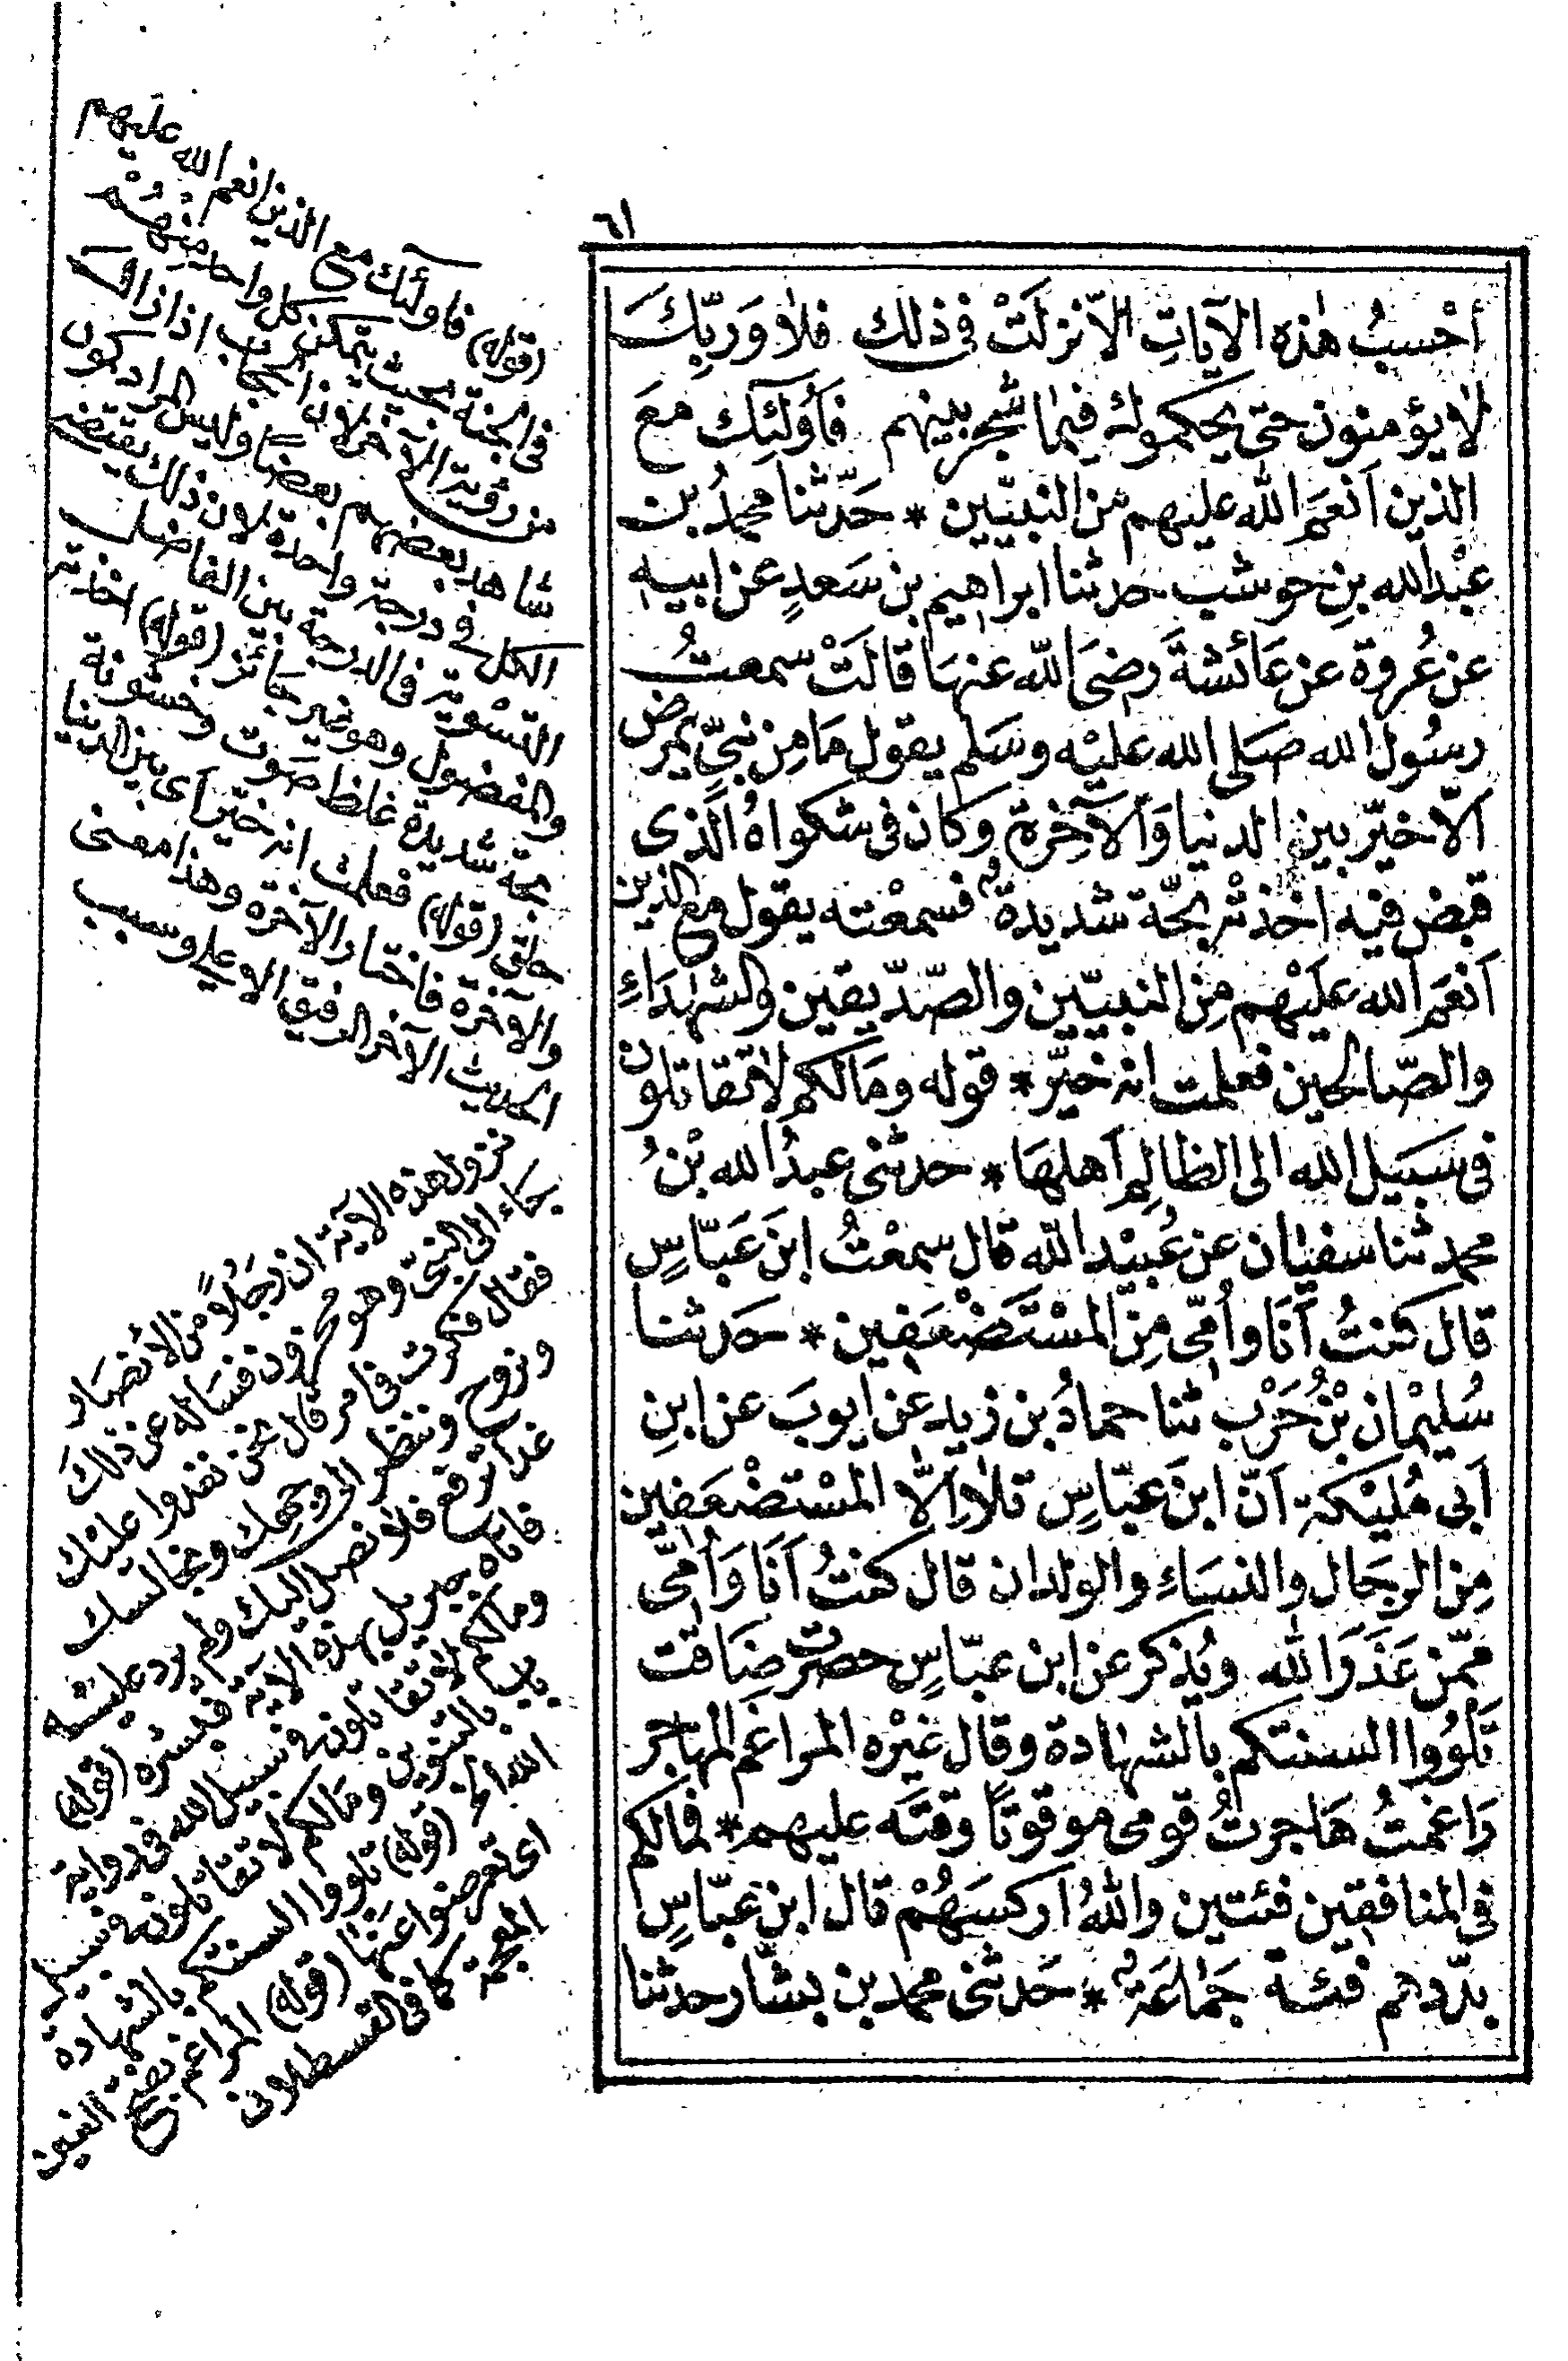 ٦١
اَحْسِبُ هٰذه الآيَاتِ الّا نزلَتْ فى ذلك فلا وَرَبِّكَ
لا يؤمنون حتى يحكموك فيما شجر بينهم فَأُولٰئِكَ معَ
الذين اَنعَمَ الله عليهم من النبيّين * حَدّثنا محمدُ بن
عبْد الله بنِ حوشب حدثنا ابراهيم بن سَعدٍ عن ابيه
عن عُروة عن عَائشةَ رضىَ الله عنهَا قالَتْ سمعتُ
رسُول الله صَلى الله عليْه وسَلم يقول مَا مِن نبىٍّ يمرض
اَلّا خيّر بين الدنيا وَالآخِرة وكان فى شكواهُ الَّذى
قبض فيه اخذتْه بحّة شديدة فسمعْته يقول مع الذين
اَنعَمَ الله عليْهم مِن النبيّين والصّدّيقين والشهدَاءِ
والصّالحين فعلمت انه خيّر * قوله ومَا لكم لا تقاتلون
فى سَبيل الله الى الظالِم اَهلهَا * حدثنى عبدُ الله بْنُ
محمد ثنا سفيان عن عُبيْد الله قال سمعْتُ ابنَ عَبّاسٍ
قال كنتُ اَنَا واُمّى مِن المسْتَضْعَفين * حَدثنا
سُليْمان بْنُ حَرْب ثنا حمادُ بن زيد عن ايوبَ عن ابنِ
اَبى مُليْكة اَنّ ابنَ عبّاسٍ تلا اِلّا المسْتضْعَفين
مِن الرجَال والنسَاءِ والولدان قال كنتُ اَنَا وَاُمّى
ممّن عَذَرَ الله ويُذكر عن ابن عبّاسٍ حصرت ضَاقت
تَلْوُوا السنتكم بالشهادة وقال غيْره المراغَم المهاجَر
رَاغمتُ هَاجرتُ قومى موقوتاً وقتَه عليهم * فما لكم
فى المنافقين فئتين واللهُ اركسَهُمْ قال ابن عبّاسٍ
بدّدهم فئة جَمَاعَة * حَدثنى محمد بن بشّار حدثنا
(قوله) فاولئك مع الذين انعم الله عليهم
فى الجنة بحيث يتمكن كل واحد منهم
من رؤية الآخر لان الحجاب اذا زال
شاهد بعضهم بعضًا وليس المراد كون
الكل فى درجة واحدة لان ذلك يقتضى
التسْوية فى الدرجة بين الفاضل
والمفضول وهو غير جائز (قوله) اخذته
بحة شديدة غلظ صوت وخشونة
حلق (قوله) فعلمت انه خير اى بين الدنيا
والآخرة فاختار الآخرة وهذا معنى
الحديث الآخر الرفيق الاعلى وسبب
نزول هذه الآية ان رجلاً من الأنصار
جاء الى النبى وهو محزون فسَاله عن ذلك
فقال فكرت فى امر قال نحن نغدوا عليْك
ونروح وننظر الى وجهك ونجالسك
غدا ترفع فلا نصل اليك ولم يرد عليه
فاتاه جبريل بهذه الآية فبشره (قوله)
وما لكم لا تقاتلون فى سبيل الله فى رواية
باب بالتنوين وما لكم لا تقاتلون فى سبيل
الله (قوله) تلووا السنتكم بالشهادة
اى تعرضوا عنها (قوله) المراغم بفتح الغين
المعجمة كما فى القسطلانى